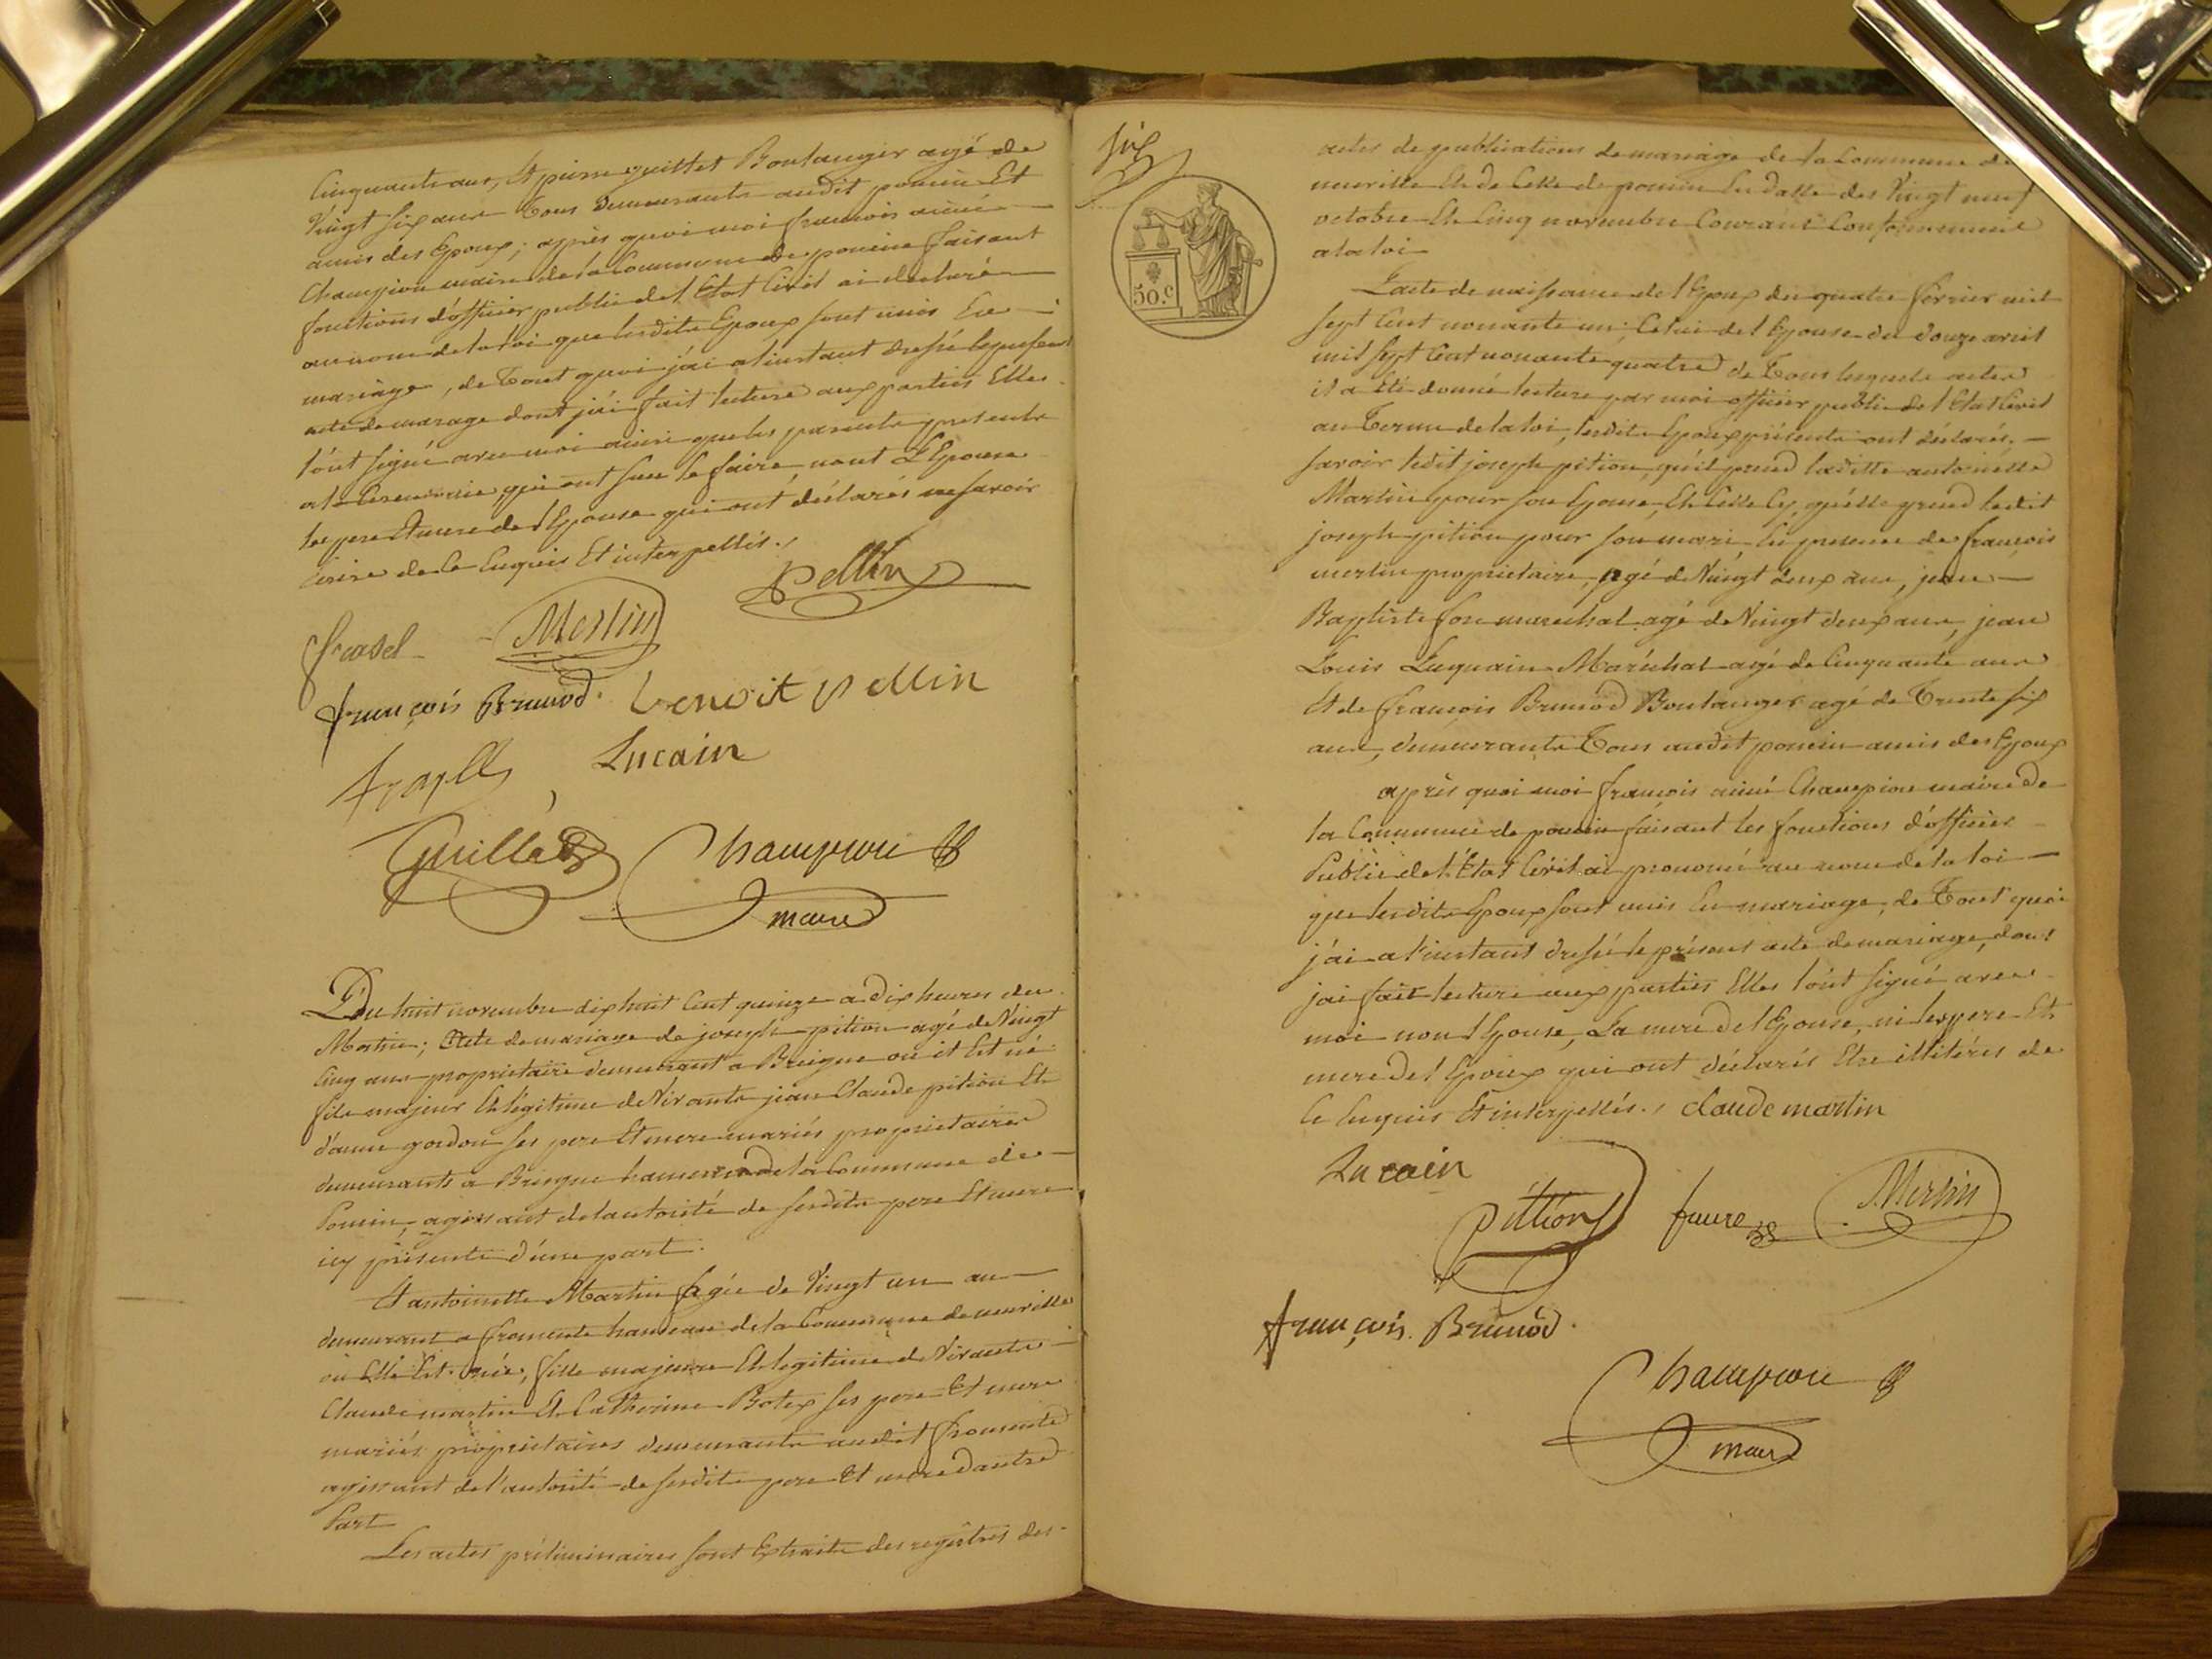 Cinquante ans, Et pierre guillet Boulanger agé de
Vingt six ans Tous Demeurants audit poncin Et
amis des Epoux; après quoi moi francois aimé
Champion maire de la Commune de poncin faisant
fonctions d'officier public de l'Etat Civil ai déclaré
au nom de la loi que lesdits Epoux sont unis En
mariage, de Tout quoi j'ai a l'instant dressé le present
acte de marage dont j'ai fait lecture aux parties Elles
l'ont signé avec moi ainsi que les parents presents
a la Ceremonie qui ont sceu le faire nont L'Epouse
les pere Et mere de l'Epouse qui ont déclarés ne savoir
écrire de Ce Enquis Et interpellés.
pellin
Merlin
françois Brunod. benoit pellin
Lucain
Guillet
Champion
maire
Du huit novembre dix huit Cent quinze a Dix heures du
Matin; Acte de mariage de joseph pition agé de Vingt
Cinq ans proprietaire demeurant a Breigne où il Est né
fils majeur Et légitime de Vivants jean Claude pition Et
d'anne gordon ses pere Et mere mariés proprietaires
demeurants a Breigne hameau de la Commune de
Poncin, agissant de l'autorité de sesdits pere Et mere
icy présents d'une part.
Et antoinette Martin agée de Vingt un an
demeurant a fromente hameau de la Commune de neuville
où Elle Est née, fille majeure Et legitime de Vivants
Claude martin Et Catherine Botex ses pere Et mere
mariés proprietaires demeurants audit fromente
agissant de l'autorité de sesdits pere Et mere dautre
Part
Les actes préliminaires sont Extraits des registres des
six
50.c
actes de publications de mariage de la Commune de
neuville Et de Celle de poncin En datte des Vingt neuf
octobre Et Cinq novembre Courant Conformement
a la loi
L'acte de naissance de l'Epoux du quatre février mil
sept Cent nonante un; Celui de l'Epouse du douze avril
mil sept Cent nonante quatre de Tous lesquels actes
il a Eté donné lecture par moi officier public de l'Etat Civil
au Terme de la loi, lesdits Epoux présents ont déclarés.
savoir ledit joseph pition, qu'il prend laditte antoinette
Martin pour son Epouse, Et Celle Cy, qu'elle prend ledit
joseph pition pour son mari, En presence de francois
merlin proprietaire, agé de Vingt deux ans, jean
Baptiste fore marechal agé de Vingt deux ans, jean
Louis Luquain Maréchal agé de Cinquante ans
Et de francois Brunod Boulanger agé de Trente six
ans, demeurants Tous audit poncin amis des Epoux
après quoi moi francois aimé Champion maire de
la Commune de poncin faisant les fonctions d'officier
Public de l'Etat Civil ai prononcé au nom de la loi
que lesdits Epoux sont unis En mariage, de Tout quoi
j'ai a l'instant dressé le présent acte de mariage, dont
jai fait lecture aux parties Elles l'ont signé avec
moi non l'Epouse, La mere de l'Epouse, ni les pere Et
mere de l'Epoux qui ont déclarés Etre illitérés de
Ce Enquis Et interpellés. claude martin
Lucain
pittion faure Merlin
françois. Brunod.
Champion
maire